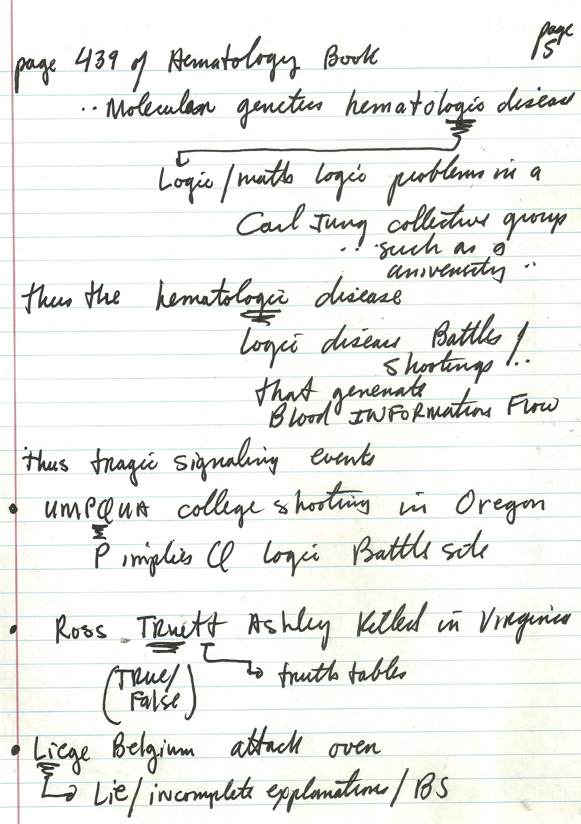 page 5
page 439 of Hematology Book
.. Molecular genetics hematologic disease
Logic / math logic problems in a
Carl Jung collective group
.. such as a
university ..
thus the hematologic disease
Logic disease Battles /
shootings !..
that generate
Blood INFORMATION Flow
thus tragic signaling events
• UMPQUA college shooting in Oregon
P implies Q logic Battle site
• Ross TRuett Ashley Killed in Virginia
(TRue/
False)
truth tables
• Liege Belgium attack over
Lie / incomplete explanations / BS